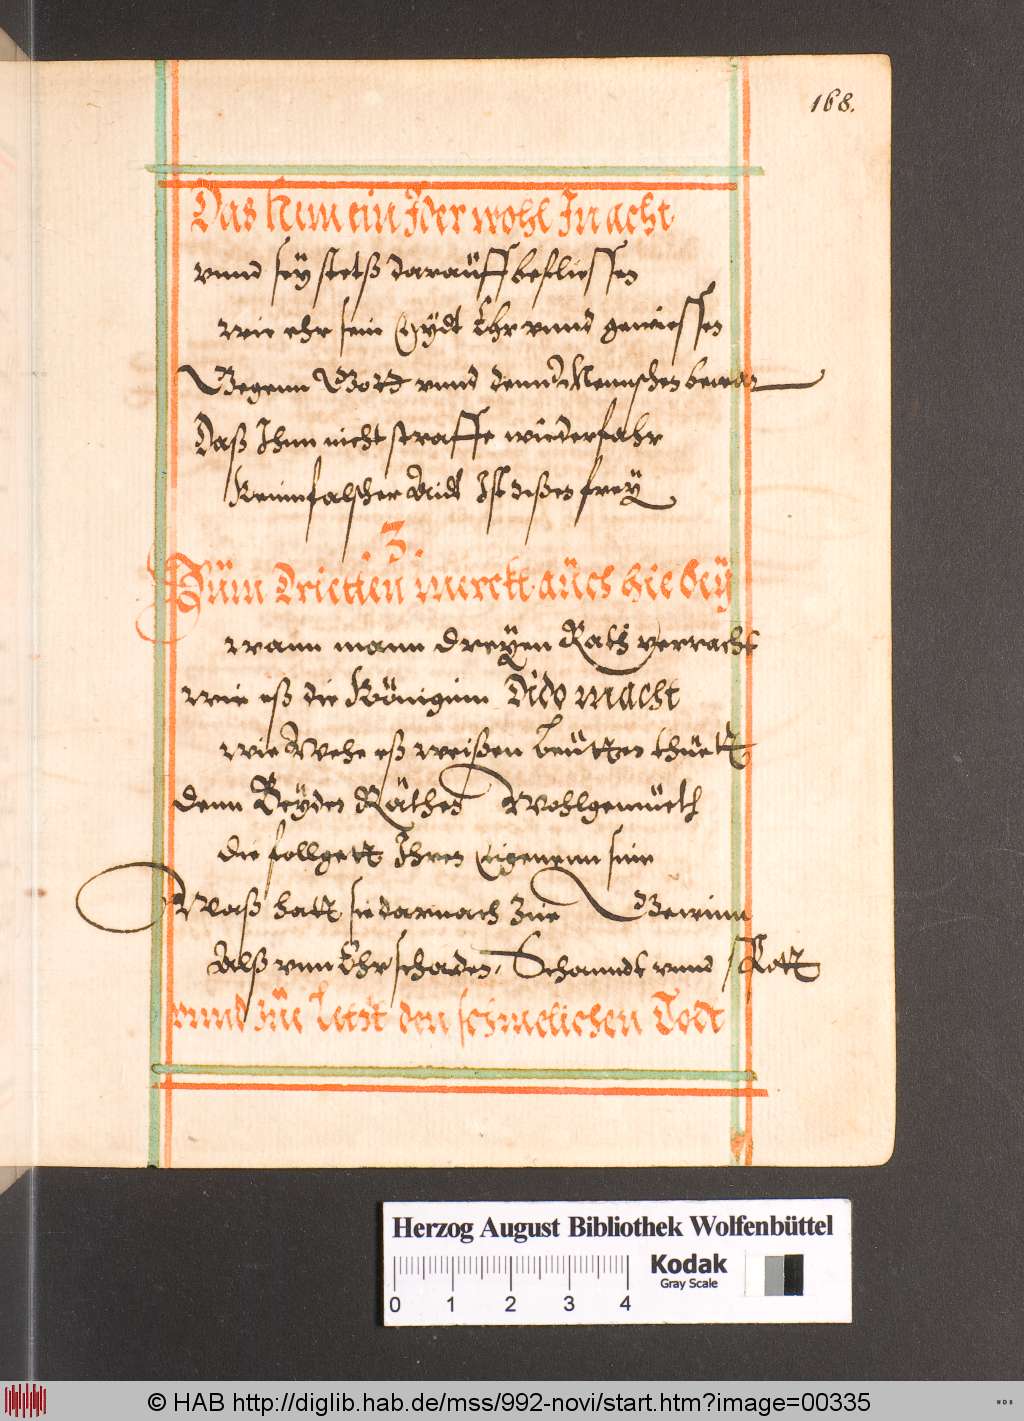 168.
Das Nim ein Jder wohl In acht
vnnd seÿ stetß daraüff befließen
wie ehr sein Eÿdt Ehr vnnd gewießen
Gegenn Gott vnnd denn Mennschen bewar
Daß Ihm nicht straffe wiederfahr
Keinn falscher Aidt Ist dißen freÿ
.3.
Züm Drietten merckt aüch hie beÿ
wann mann dreÿen Rath veracht
wie eß die Königinn Dido macht
wie Wehe eß weißen leütten thüett
denn Beÿdes Räthes Wohlgemüeth
die follgett Ihren Eigenenn sinn
Waß hatt sie darnach züe Gewinn
Alß vnn Ehr schaden, Schanndt vnnd spott
vnnd züe letzt den schmelichen Todt
Herzog August Bibliothek Wolfenbüttel
0 1 2 3 4
Kodak
Gray Scale
© HAB http://diglib.hab.de/mss/992-novi/start.htm?image=00335